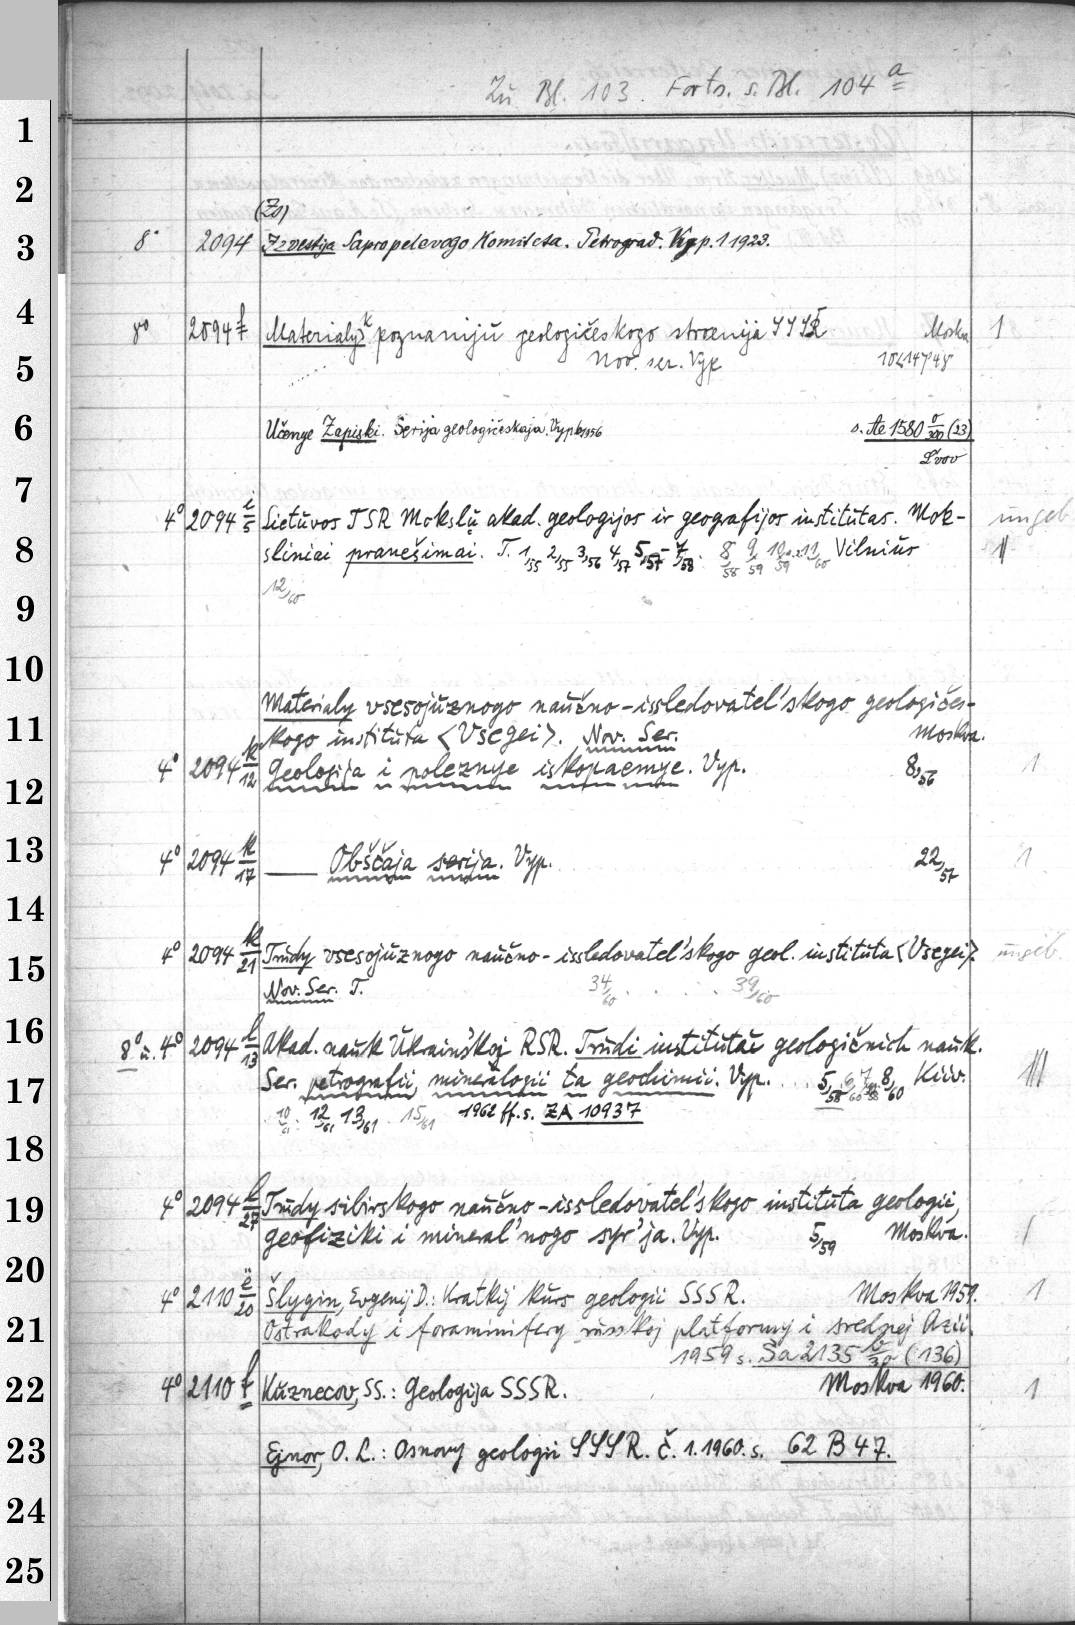 Zu Bl. 103. Forts. s. Bl. 104 a
1
2
(Zs)
3 8° 2094 Izvestija Sapropelevogo Komiteta. Petrograd. Vyp. 1 1923.
4 8° 2094 f Materialy k poznaniju geologičeskogo stroenija SSSR Moskva 1
5 Nov. ser. Vyp
6 Učenye Zapiski. Serija geologičeskaja. Vyp. 1956 s. Ae 1580 (23)
7 Lvov
4° 2094 i/5 Lietuvos TSR Mokslų akad. geologijos ir geografijos institutas. Mok- ungeb
8 sliniai pranešimai. T. 1,55 2,55 3,56 4,57 5,57-7,58 8/58 9/59 10/59 11/60 Vilnius
9 12,60
10
Materialy vsesojuznogo naučno-issledovatel'skogo geologičes-
11 kogo instituta <Vsegei>. Nov. Ser. Moskva.
12 4° 2094 k/12 Geologija i poleznye iskopaemye. Vyp. 8,56 1
13 4° 2094 k/17 —— Obščaja serija. Vyp. 22,57 1
14
15 4° 2094 k/21 Trudy vsesojuznogo naučno-issledovatel'skogo geol. instituta <Vsegei>. ungeb.
Nov. Ser. T. 34/60 . . . . 39/60
16 8° u. 4° 2094 l/13 Akad. nauk Ukrains'koj RSR. Trudi institutu geologičnich nauk.
17 Ser. petrografii, mineralogii ta geochimii. Vyp. . . . 5,58 6/60 7 8/60 Kiiv. III
10/61 12/61 13/61 15/61 1962 ff. s. ZA 10937
18
19 4° 2094 l/27 Trudy sibirskogo naučno-issledovatel'skogo instituta geologii,
geofiziki i mineral'nogo syr'ja. Vyp. 5,59 Moskva. 1
20
4° 2110 e/20 Šlygin, Evgenij D.: Kratkij kurs geologii SSSR. Moskva 1959. 1
21 Ostrakody i foraminifery russkoj platformy i srednej Azii.
1959 s. Sa 2135 b/30 (136)
22 4° 2110 f Kuznecov, SS.: Geologija SSSR. Moskva 1960. 1
23 Ejnor, O. L.: Osnovy geologii SSSR. č. 1. 1960. s. 62 B 47.
24
25